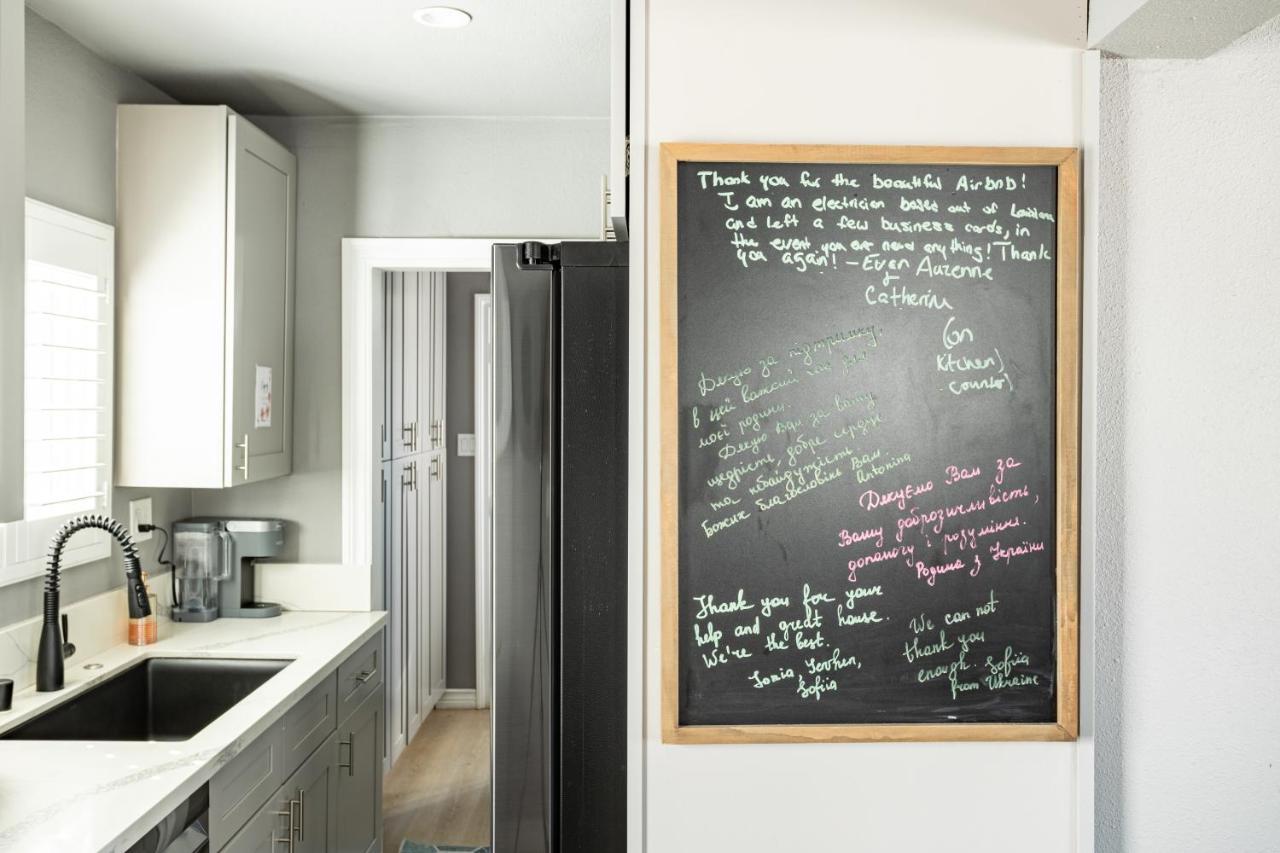 Thank you for the beautiful Airbnb!
I am an electrician based out of Louisiana
and left a few business cards, in
the event you ever need anything! Thank
you again! - Evan Auzenne
&
Catherine
(on
kitchen)
counter)
Дякую за підтримку,
в цей важкий час для
моєї родини.
Дякую Вам за вашу
щедрість добре серце
та небайдужість.
Божих благословінь Вам.
Antonina
Дякуємо Вам за
Вашу доброзичливість,
допомогу і розуміння.
Родина з України
Thank you for your
help and great house.
We're the best.
Sofiia
We can not
thank you
enough. Sofiia
from Ukraine